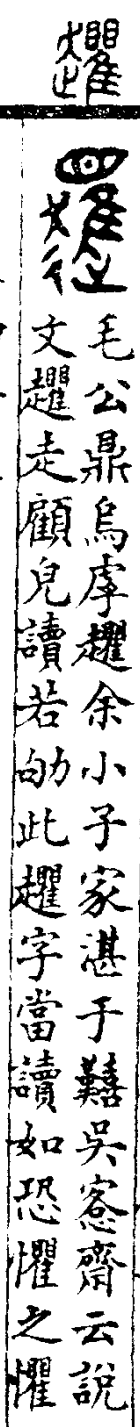 𧾱
毛公鼎烏虖𧾱余小子家湛于囏吳愙齋云說
文𧾱走顧皃讀若劬此𧾱字當讀如恐懼之懼